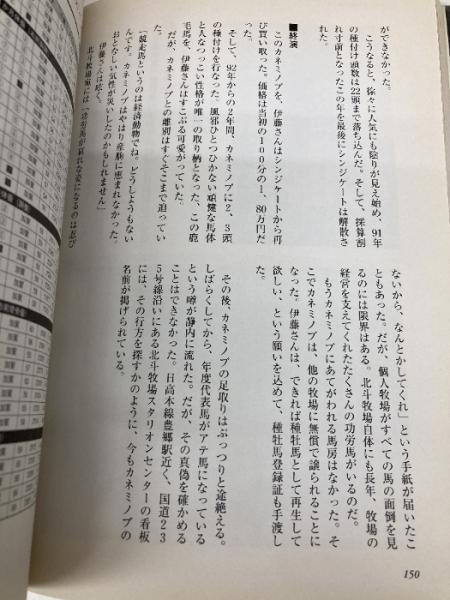 ができなかった。
こうなると、徐々に人気にも陰りが見え始め、91年
の種付け頭数は22頭まで落ち込んだ。そして、採算割
れ寸前となったこの年を最後にシンジケートは解散さ
れた。
■終演
このカネミノブを、伊藤さんはシンジケートから再
び買い取った。価格は当初の100分の1、80万円だ
った。
そして、92年からの2年間、カネミノブに2、3頭
の種付けを行なった。風邪ひとつひかない頑健な馬体
と人なつっこい性格が唯一の取り柄となった、この鹿
毛馬を、伊藤さんはすこぶる可愛がっていた。
だが、カネミノブとの離別はすぐそこまで迫ってい
た。
「競走馬というのは経済動物でね。どうしようもない
んです。カネミノブはやはり産駒に恵まれなかった。
おとなしい気性が災いしたのかもしれません」
伊藤さんは呟く。
北斗牧場宛には「功労馬が哀れな姿になるのは忍び
ないから、なんとかしてくれ」という手紙が届いたこ
ともあった。だが、個人牧場がすべての馬の面倒を見
るのには限界はある。北斗牧場自体にも長年、牧場の
経営を支えてくれたたくさんの功労馬がいるのだ。
もうカネミノブにあてがわれる馬房はなかった。そ
こでカネミノブは、他の牧場に無償で譲られることに
なった。伊藤さんは、できれば種牡馬として再生して
欲しい、という願いを込めて、種牡馬登録証も手渡し
た。
その後、カネミノブの足取りはぷっつりと途絶える。
しばらくしてから、年度代表馬がアテ馬になっている
という噂が静内に流れた。だが、その真偽を確かめる
ことはできなかった。日高本線豊郷駅近く、国道23
5号線沿いにある北斗牧場スタリオンセンターの看板
には、その行方を探すかのように、今もカネミノブの
名前が掲げられている。
150